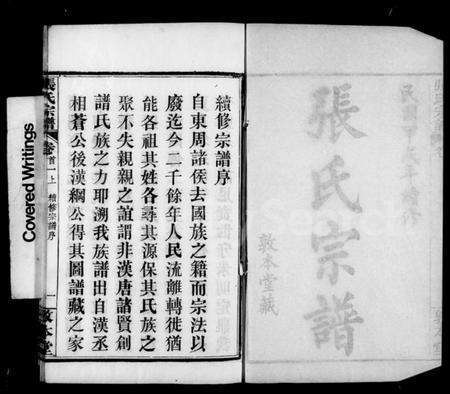 民國甲
續序
張氏宗譜
敦本堂藏
續修宗譜序
自東周諸侯去國族之籍而宗法以
廢迄今二千餘年人民流離轉徙猶
能各祖其姓各尋其源保其氏族之
聚不失親親之誼謂非漢唐諸賢創
譜氏族之力耶溯我族譜出自漢丞
相蒼公後漢綱公得其圖譜藏之家
張氏宗譜
卷首一上
續修宗譜序
一
敦本堂
Covered Writings